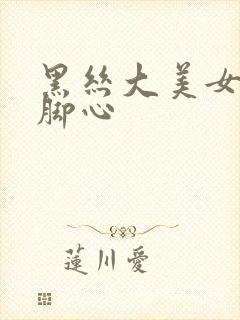 黑丝大美女
脚心
莲川爱